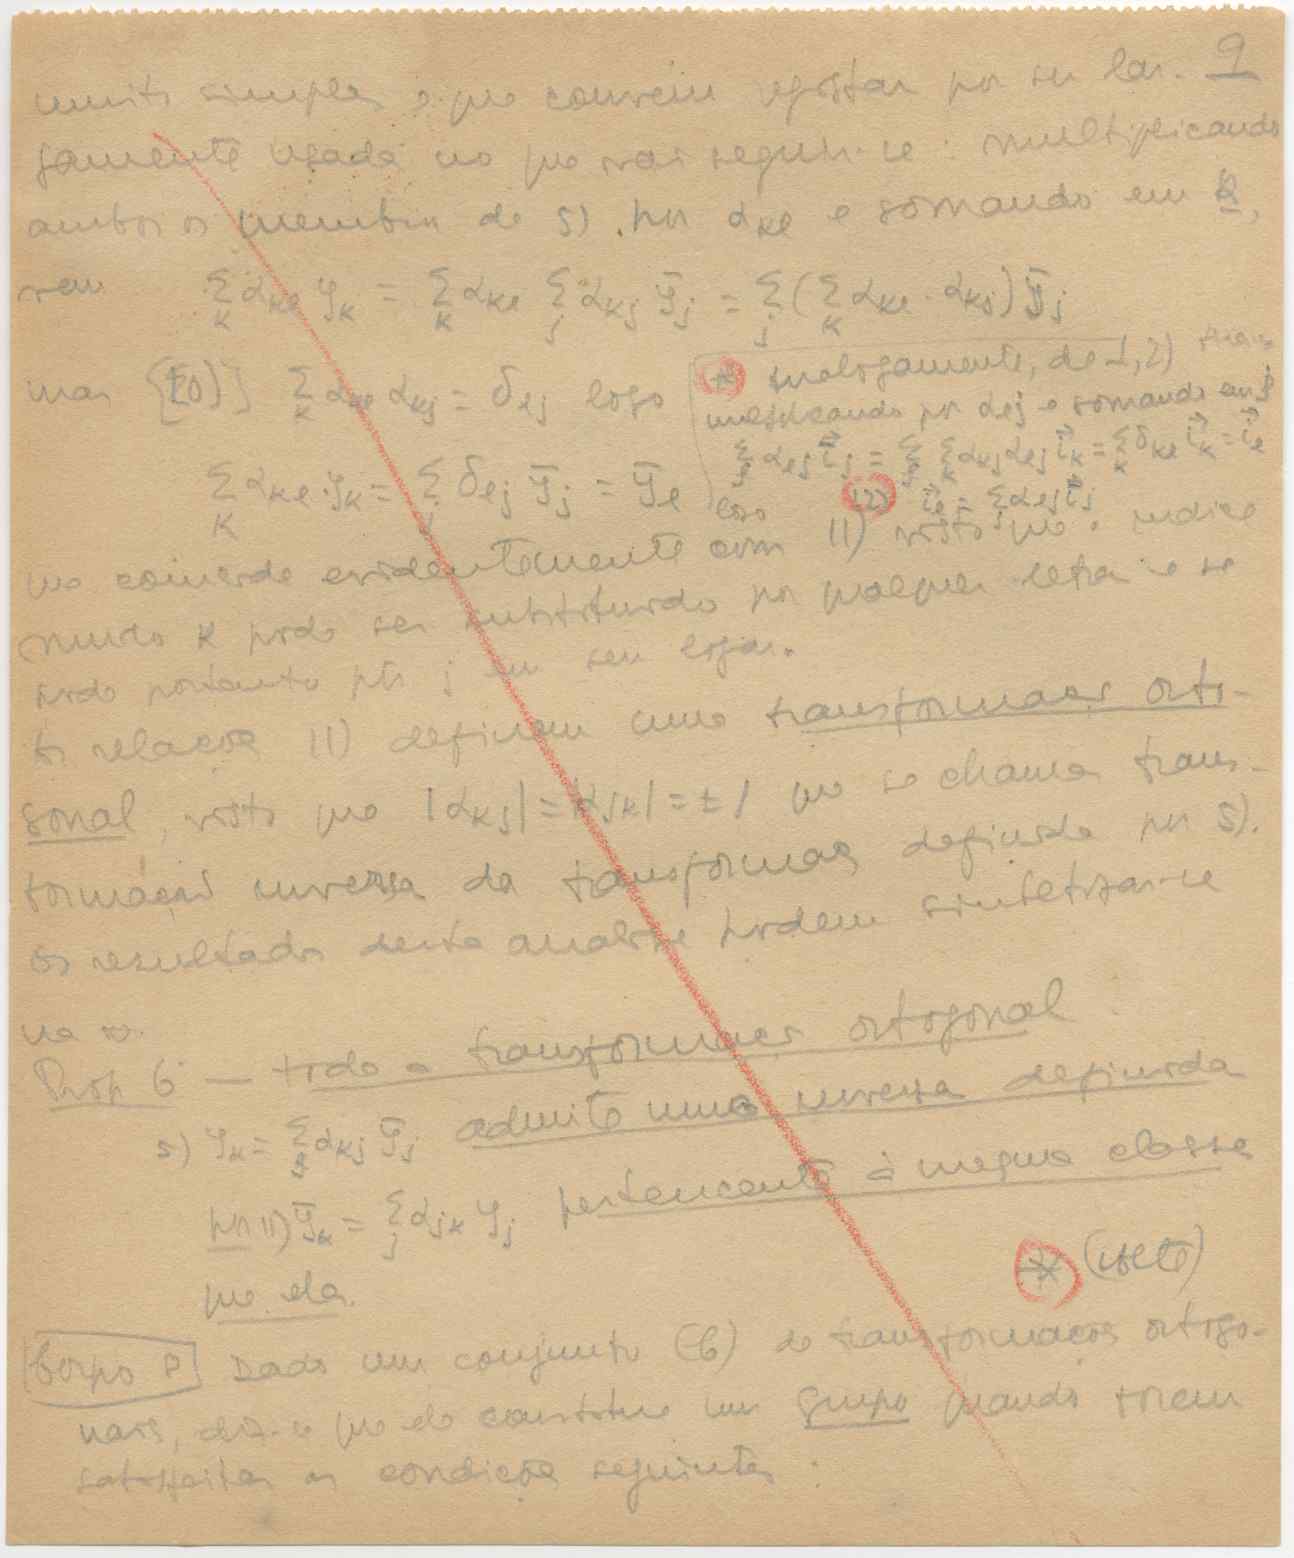 9
muito simples e que convem registar por ser lar-
gamente usada no que vai seguir-se: multiplicando
ambos os membros de 5) por α_kl e somando em k,
vem Σ_k α_kl y_k = Σ_k α_kl Σ_j α_kj ȳ_j = Σ_j (Σ_k α_kl · α_kj) ȳ_j
mas [10)] Σ_k α_kl α_kj = δ_lj logo
Σ_k α_kl · y_k = Σ_j δ_lj ȳ_j = ȳ_l
* analogamente, de 1,2)
multiplicando por α_lj e somando em j
Σ_j α_lj i⃗_j = Σ_j Σ_k α_kj α_lj i⃗_k = Σ_k δ_kl i⃗_k = i⃗_l
logo 12) i⃗_l = Σ_j α_lj i⃗_j
que coincide evidentemente com 11) visto que o indice
mudo k pode ser substituido por qualquer letra e se
-lo portanto por j em seu logar.
As relações 11) definem uma transformação orto-
gonal, visto que |α_kj| = |α_jk| = ±1 que se chama trans-
formação inversa da transformação definida por 5).
Os resultados desta analise podem sintetizar-se
na
Prop 6 — toda a transformação ortogonal
5) y_k = Σ_j α_kj ȳ_j admite uma inversa definida
por 11) ȳ_k = Σ_j α_jk y_j pertencente à mesma classe
que ela.
* (volte)
Grupo Dado um conjunto (G) de transformações ortogo-
nais, diz-se que ele constitue um grupo quando forem
satisfeitas as condições seguintes: